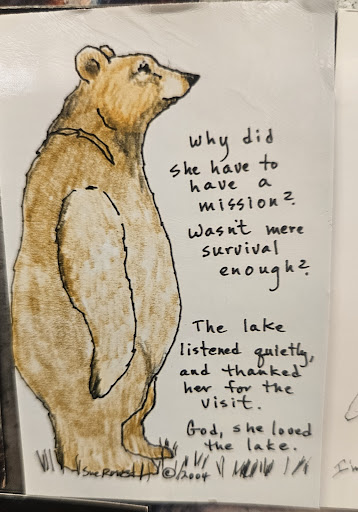 Why did
she have to
have a
mission?
Wasn't mere
survival
enough?
The lake
listened quietly,
and thanked
her for the
visit.
God, she loved
the lake.
©/2004